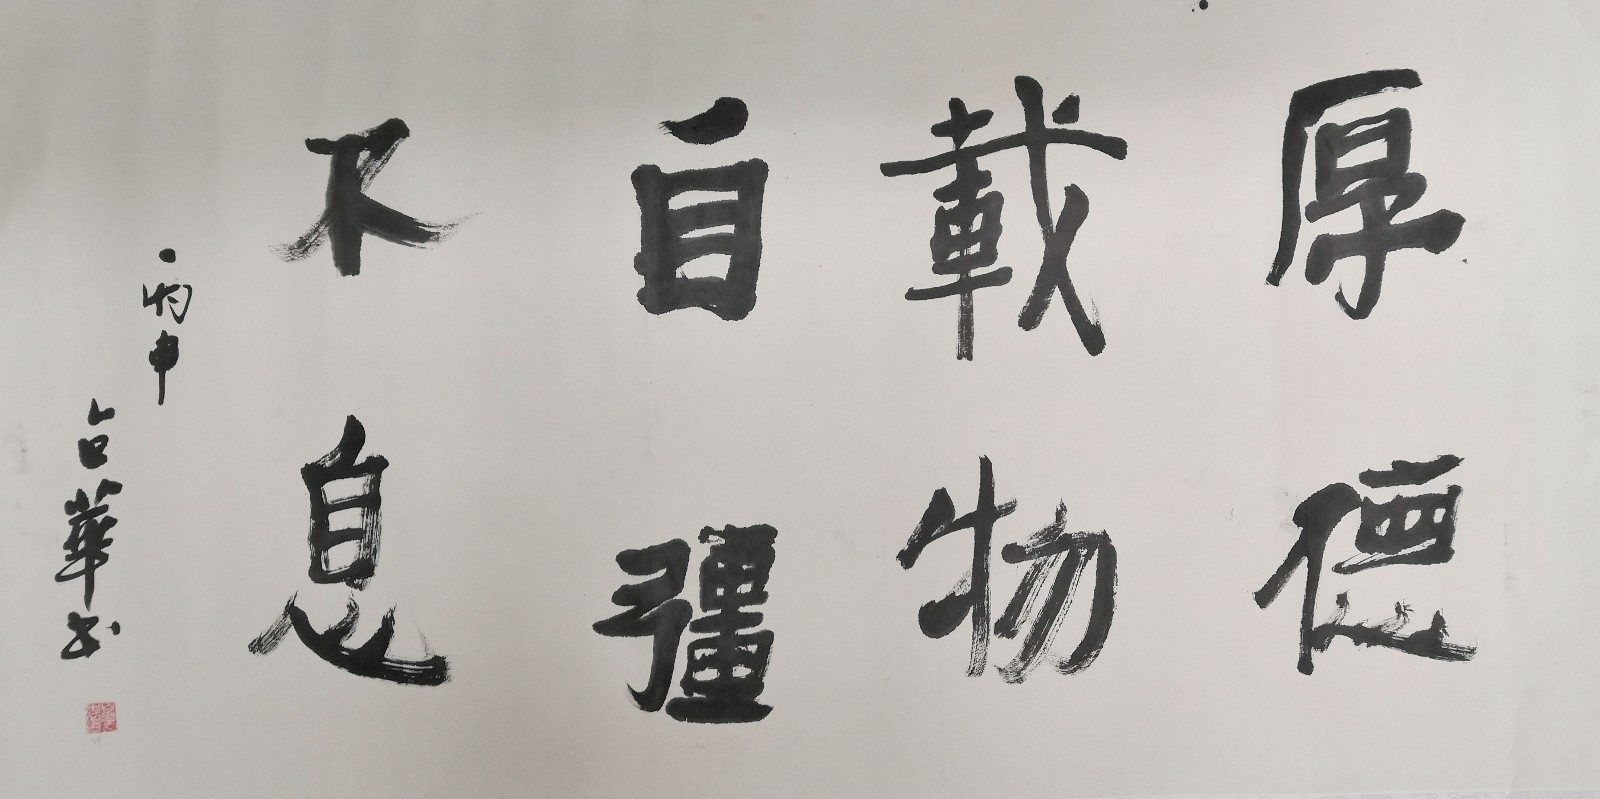 厚德
載物
自彊
不息
丙申
華书